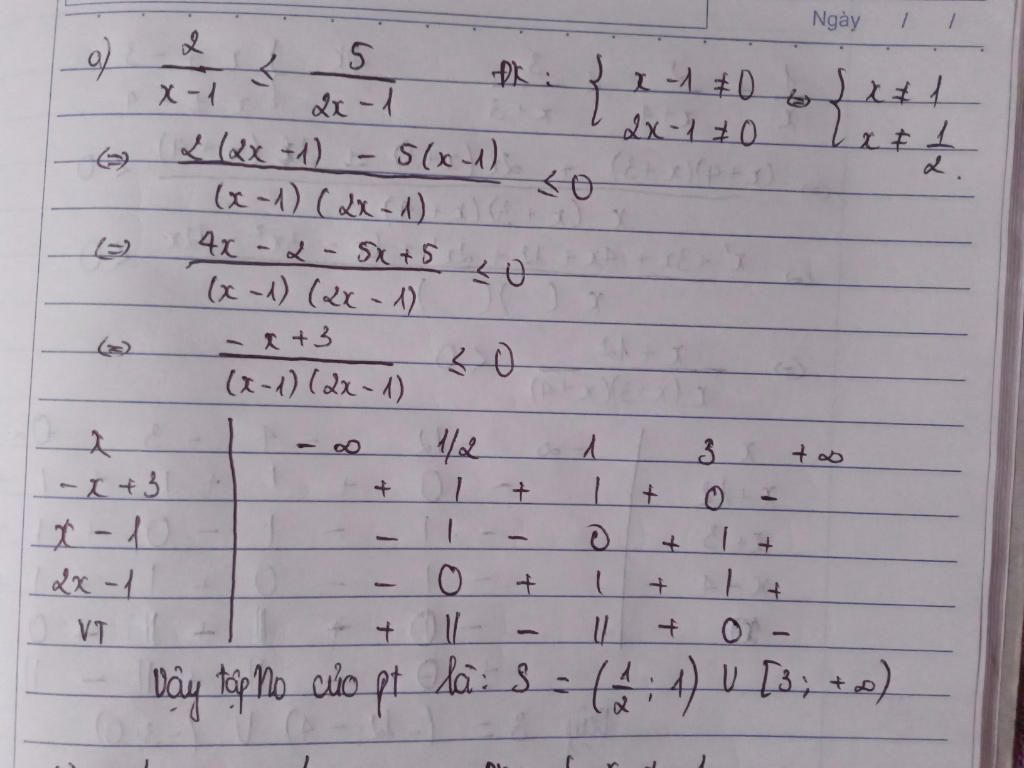 Ngày / /
a) 2/(x-1) ≤ 5/(2x-1) ĐK: { x-1 ≠ 0 ; 2x-1 ≠ 0 ⇔ { x ≠ 1 ; x ≠ 1/2.
⇔ (2(2x-1) - 5(x-1))/((x-1)(2x-1)) ≤ 0
⇔ (4x - 2 - 5x + 5)/((x-1)(2x-1)) ≤ 0
⇔ (-x+3)/((x-1)(2x-1)) ≤ 0
x | -∞ 1/2 1 3 +∞
-x+3 | + | + | + 0 -
x-1 | - | - 0 + | +
2x-1 | - 0 + | + | +
VT | + || - || + 0 -
Vậy tập No của pt là: S = (1/2; 1) ∪ [3; +∞)